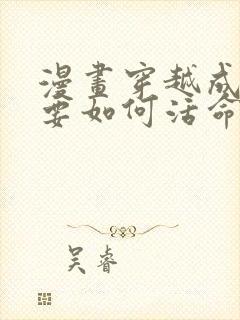 漫畫穿越成
要如何活命
吴睿